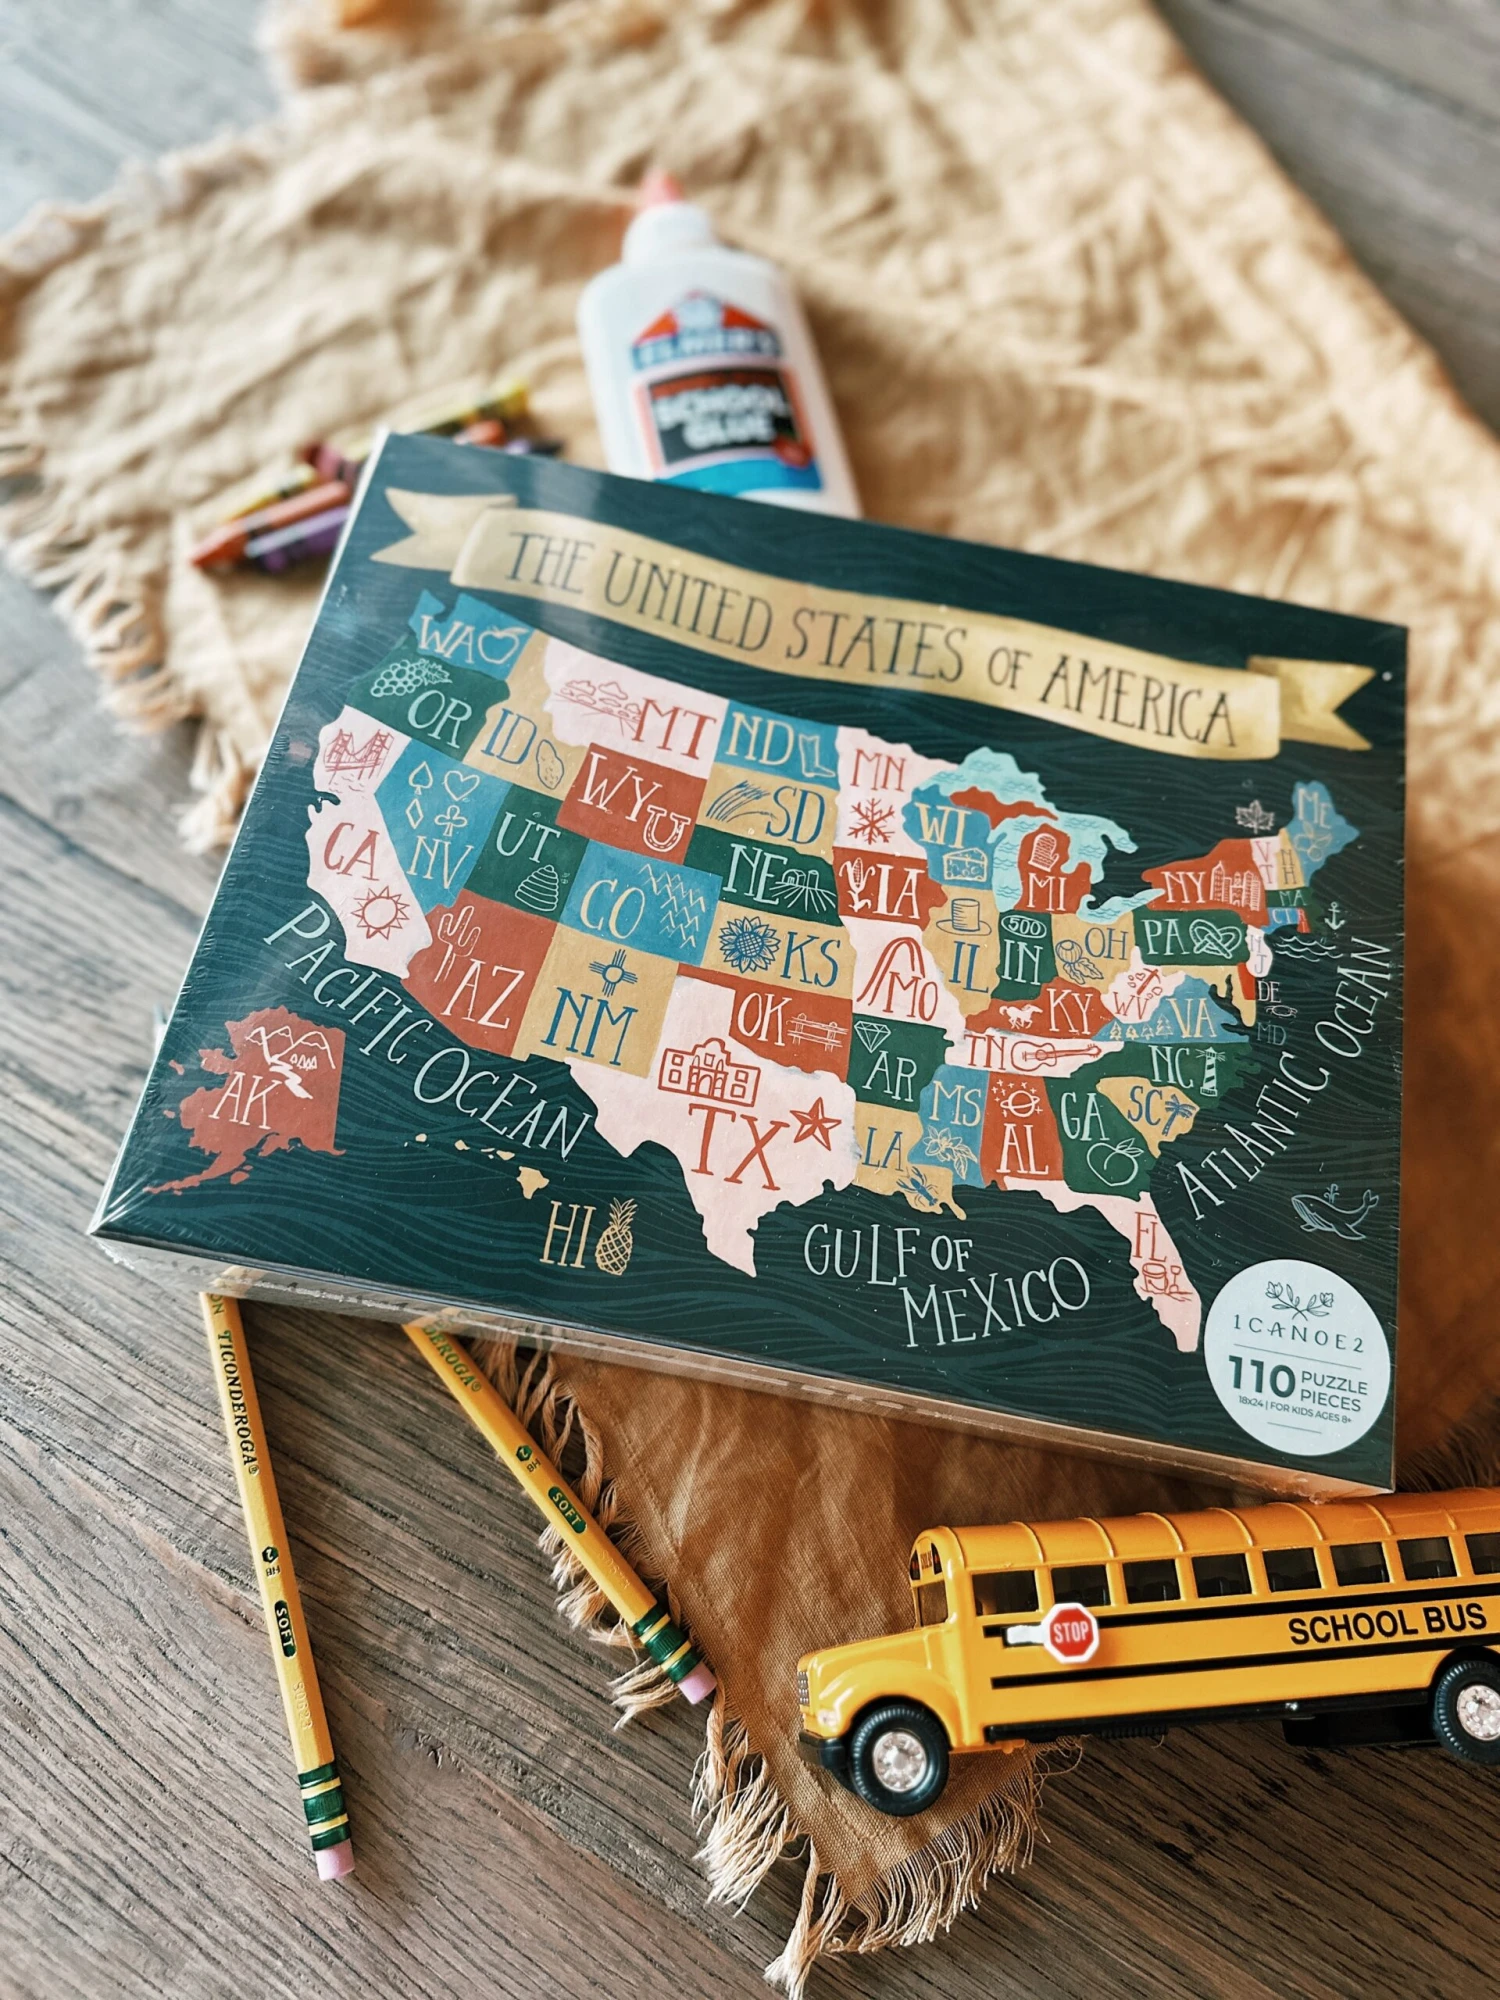 ELMER'S
SCHOOL
GLUE
THE UNITED STATES OF AMERICA
WA
OR
ID
MT
ND
MN
WI
MI
ME
VT
NH
MA
CT
NY
PA
NJ
DE
MD
CA
NV
UT
WY
SD
NE
IA
CO
KS
MO
IL
500
IN
OH
KY
WV
VA
AZ
NM
OK
AR
TN
NC
SC
TX
LA
MS
AL
GA
FL
AK
HI
PACIFIC OCEAN
GULF OF
MEXICO
ATLANTIC OCEAN
1CANOE2
110 PUZZLE
PIECES
18x24 | FOR KIDS AGES 8+
TICONDEROGA®
2 HB
SOFT
DEROGA®
2 HB
SOFT
STOP
SCHOOL BUS